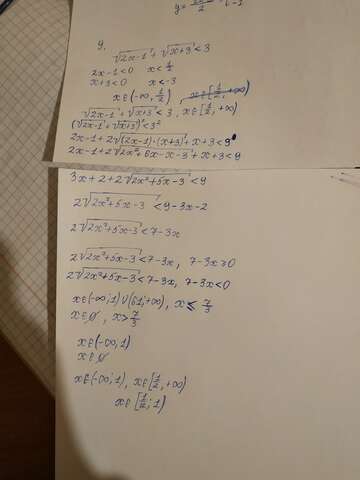 9.
√2x-1 + √x+3 < 3
2x-1<0 x<1/2
x+3<0 x<-3
x∈(-∞, 1/2) , x∈[1/2, +∞)
√2x-1 + √x+3 < 3 , x∈[1/2, +∞)
(√2x-1 + √x+3)² < 3²
2x-1+2√(2x-1)·(x+3) + x+3 < 9
2x-1+2√2x²+6x-x-3 + x+3 < 9
3x+2+2√2x²+5x-3 < 9
2√2x²+5x-3 < 9-3x-2
2√2x²+5x-3 < 7-3x
2√2x²+5x-3 < 7-3x, 7-3x≥0
2√2x²+5x-3 < 7-3x, 7-3x<0
x∈(-∞;1)∪(61;+∞), x≤7/3
x∈∅, x>7/3
x∈(-∞,1)
x∈∅
x∈(-∞;1), x∈[1/2, +∞)
x∈[1/2; 1)